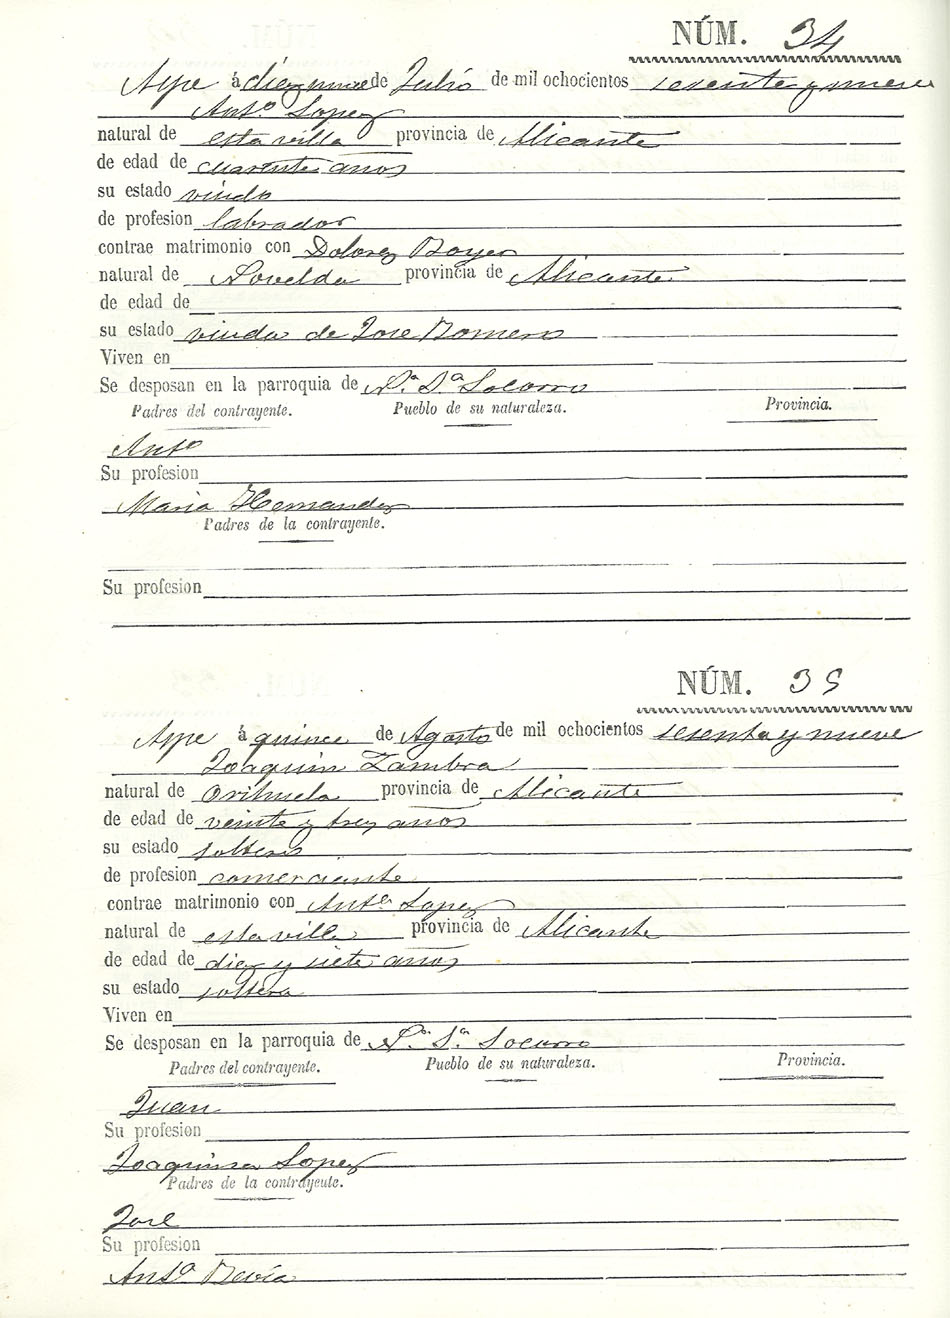 NÚM. 34
Aspe á diez y nueve de Julio de mil ochocientos sesenta y nueve
Antº Lopez
natural de esta villa provincia de Alicante
de edad de cuarenta años
su estado viudo
de profesion labrador
contrae matrimonio con Dolores Boyer
natural de Novelda provincia de Alicante
de edad de
su estado viuda de Jose Romero
Viven en
Se desposan en la parroquia de N.ª S.ª Socorro
Padres del contrayente. Pueblo de su naturaleza. Provincia.
Antº
Su profesion
Maria Hernandez
Padres de la contrayente.
Su profesion
NÚM. 35
Aspe á quince de Agosto de mil ochocientos sesenta y nueve
Joaquin Zambra
natural de Orihuela provincia de Alicante
de edad de veinte y tres años
su estado soltero
de profesion comerciante
contrae matrimonio con Antª Lopez
natural de esta villa provincia de Alicante
de edad de diez y siete años
su estado soltera
Viven en
Se desposan en la parroquia de N.ª S.ª Socorro
Padres del contrayente. Pueblo de su naturaleza. Provincia.
Juan
Su profesion
Joaquina Lopez
Padres de la contrayente.
Jose
Su profesion
Antª